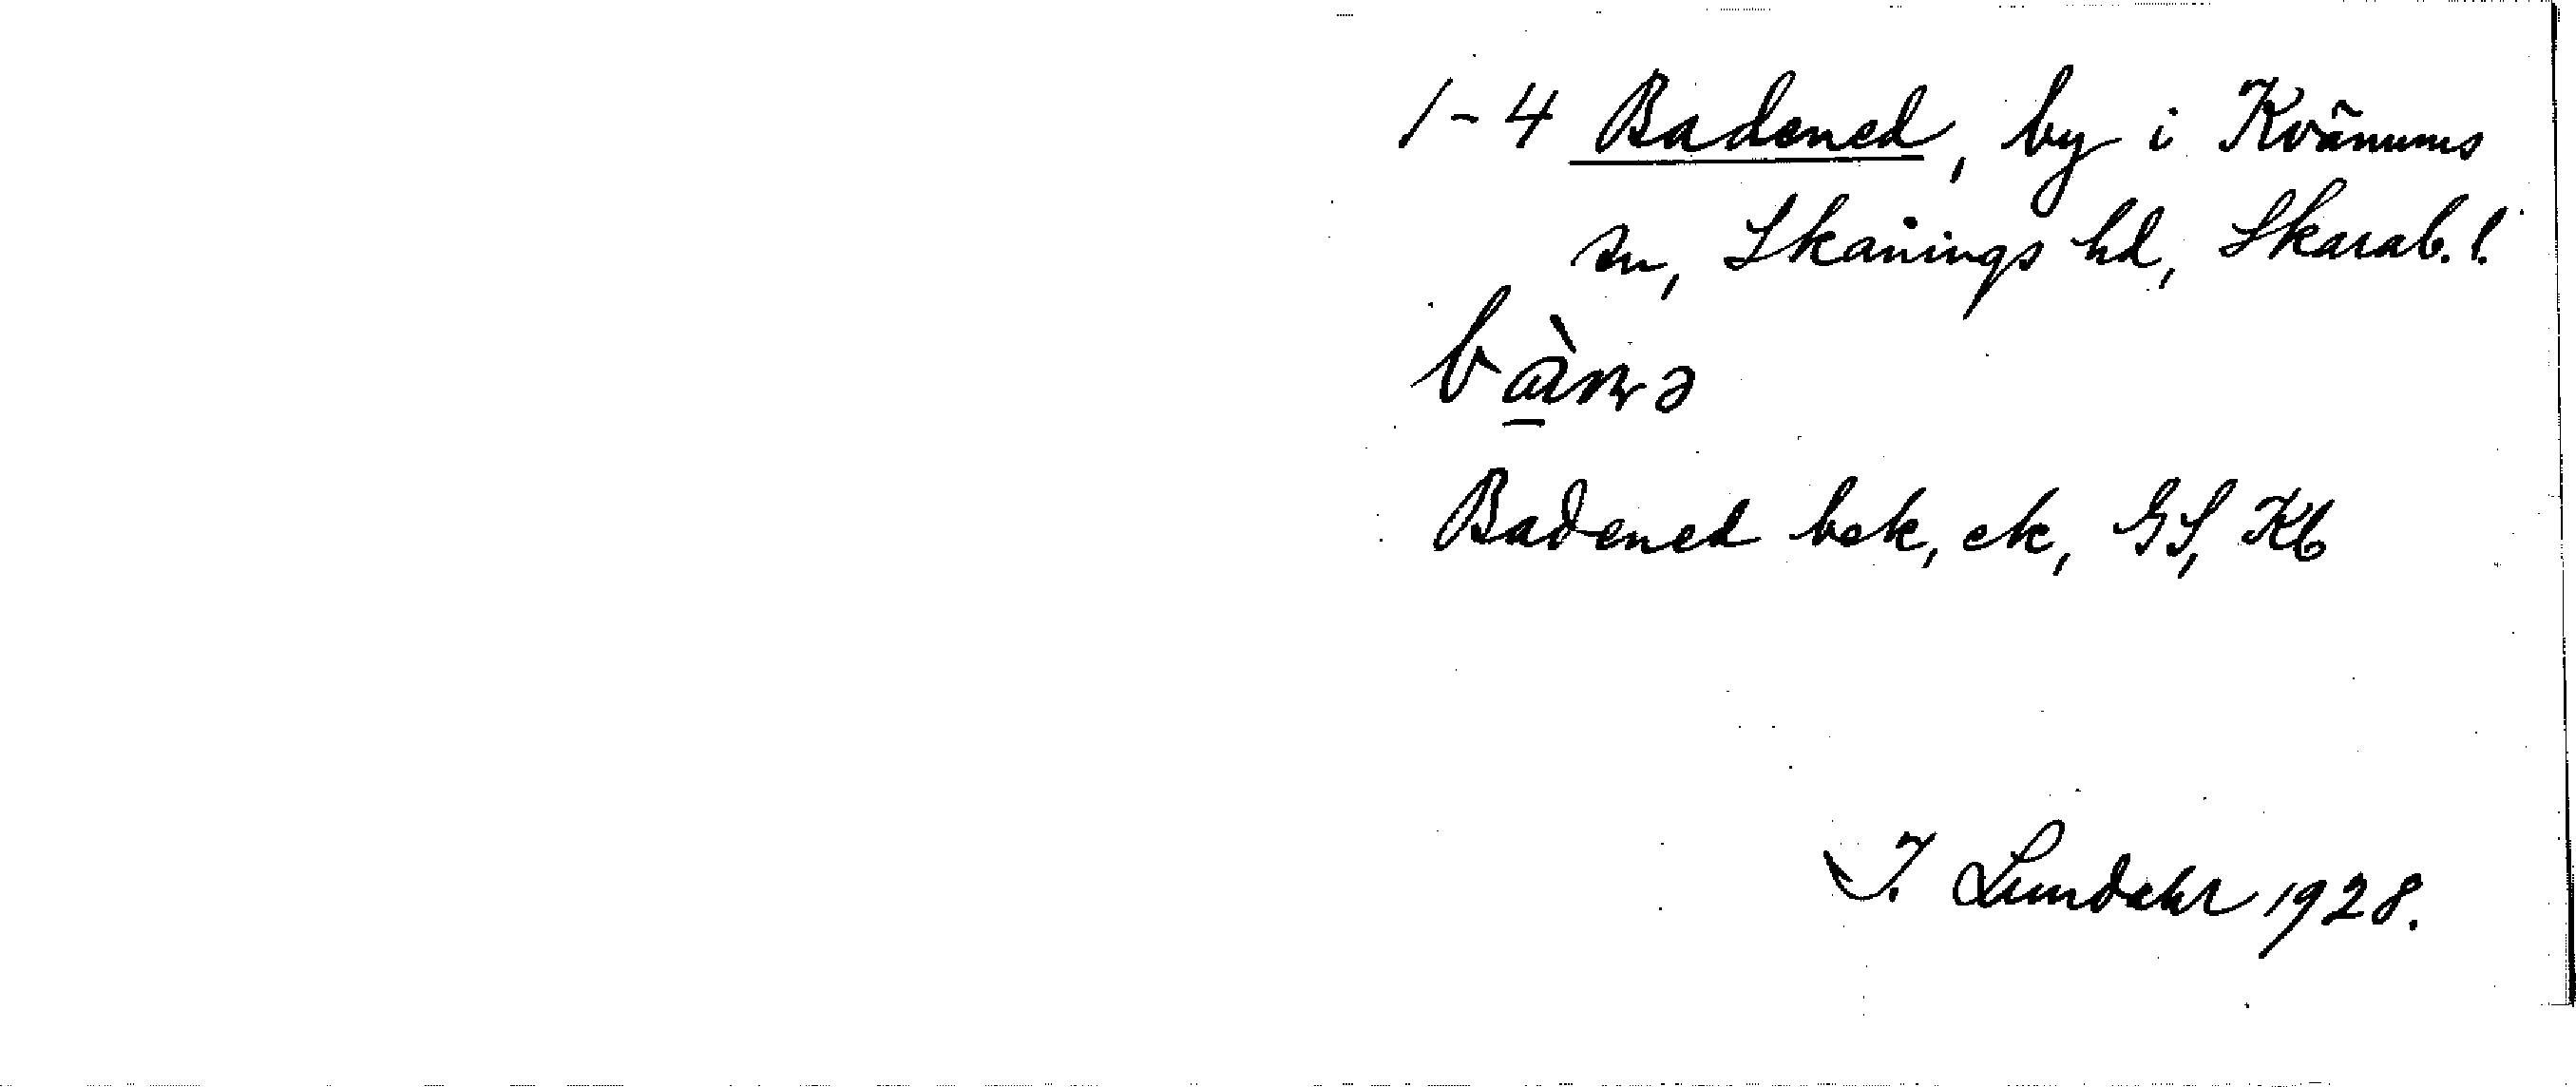 1-4 Badened, by i Kvänums
sn, Skånings hd, Skarab. l.
Badened bek, ek, GS, Kb
I. Lundahl 1928.